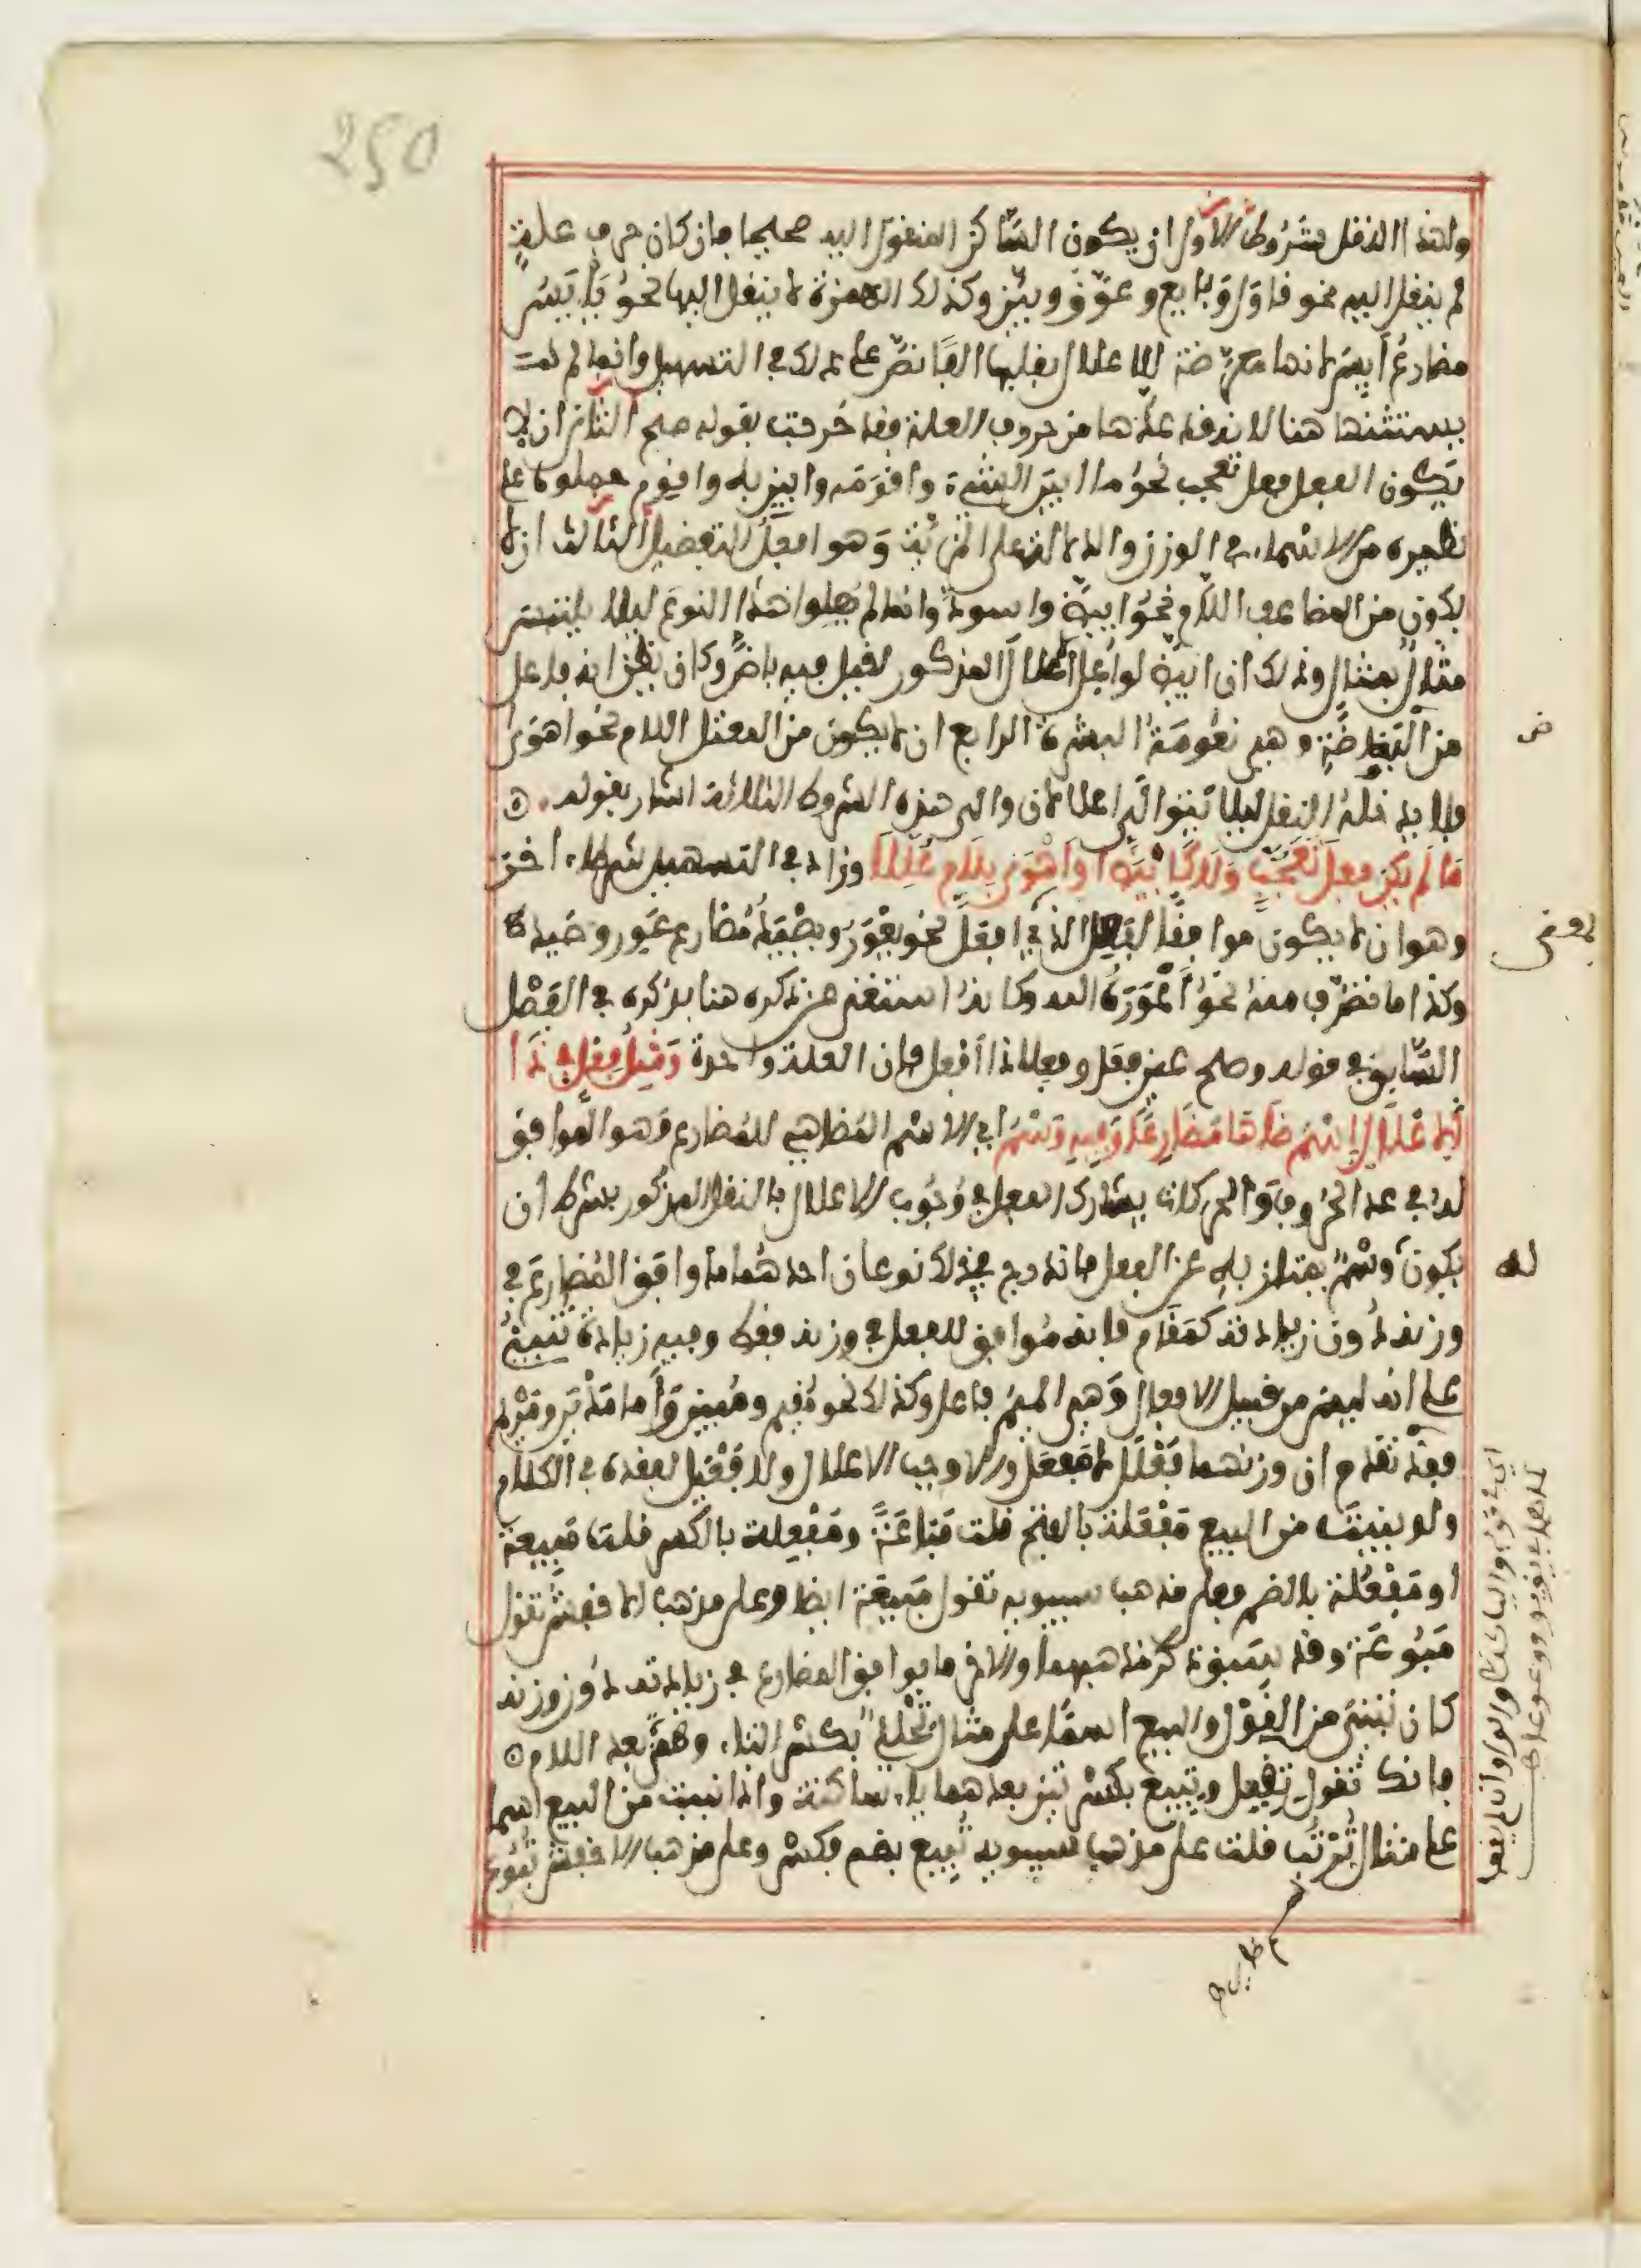 250
ولهذا النقل شروط الأول ان يكون الساكن المنقول اليه صحيحا فان كان حرف علة
لم ينقل اليه نحو قاول وبايع وعوّق وبيّن وكذلك الهمزة لا ينقل اليها نحو يأيس
مضارع أيس لانها معرّضة للاعلال بقلبها الفا نصّ على ذلك في التسهيل وانما لم
يستثنها هنا لانه قد عدّها من حروف العلة فقد خرجت بقوله صح الثاني ان لا
يكون الفعل فعل تعجب نحو ما ابين الشيء واقومه وابين به واقوم حملوه على
نظيره من الاسماء في الوزن والدلالة على المزية وهو افعل التفضيل الثالث ان لا
يكون من المضاعف اللام نحو ابيضّ واسودّ وانما لم يعلوا هذا النوع ليلا يلتبس
مثال بمثال وذلك ان ابيضّ لو أعل الاعلال المذكور لقيل فيه باضّ وكان يظن انه فاعل
من البضاضة وهي نعومة البشرة الرابع ان لا يكون من المعتل اللام نحو اهوى
فلا يدخله النقل ليلا يتوالى اعلالان والى هذه الشروط الثلاثة اشار بقوله
مَا لَم يكن فعلَ تعجّب وَلَا كابيَضّ او اهْوَى بلام عُلِّلا وزاد في التسهيل شرطا اخر
وهو ان لا يكون موافقا لفعل الذي بمعنى افعلّ نحو يعور ويصْيَد مضارع عور وصيد
وكذا ما تصرف منه نحو أعْوَره الله وكانه استغنى عن ذكره هنا بذكره في الفصل
السابق في قوله وصح عين فعل وفعلا ذا أفعل فان العلة واحدة وَمثلُ فعل في ذا
الاعلال اسم ضاهى مضارعا وفيه وسم اي الاسم المضاهي للمضارع وهو الموافق
له في عدد الحروف والحركات يشارك الفعل في وجوب الاعلال بالنقل المذكور بشرط ان
يكون فيه وسم يمتاز به عن الفعل فاندرج في ذلك نوعان احدهما ما وافق المضارع في
وزنه دون زيادته كمقام فانه موافق للفعل في وزنه فقط وفيه زيادة تنبئ
على انه ليس من قبيل الافعال وهي الميم فاعل وكذلك نحو مقيم ومبين وأما مدْين ومريم
فقد تقدم ان وزنهما فَعْلَل لا مَفعَل والا وجب الاعلال ولا فَعْيَل لفقده في الكلام
ولو بنيت من البيع مَفْعَلة بالفتح قلت مَباعَة ومَفْعِلة بالكسر قلت مَبِيعة
او مَفْعُلة بالضم فعلى مذهب سيبويه تقول مَبِيعَة ايضا وعلى مذهب الاخفش تقول
مَبُوعَة وقد سبق ذكر مذهبهما والاخر ما يوافق المضارع في زيادته دون وزنه
كان تبني من القول والبيع اسما على مثال تِحْلِئ بكسر التاء وهمز بعد اللام
فانك تقول تِقِيل وتِبِيع بكسرتين بعدهما ياء ساكنة واذا بنيت من البيع اسما
على مثال تُرْتُب قلت على مذهب سيبويه تُبِيع بضم فكسر وعلى مذهب الاخفش تبُوع
ض
له